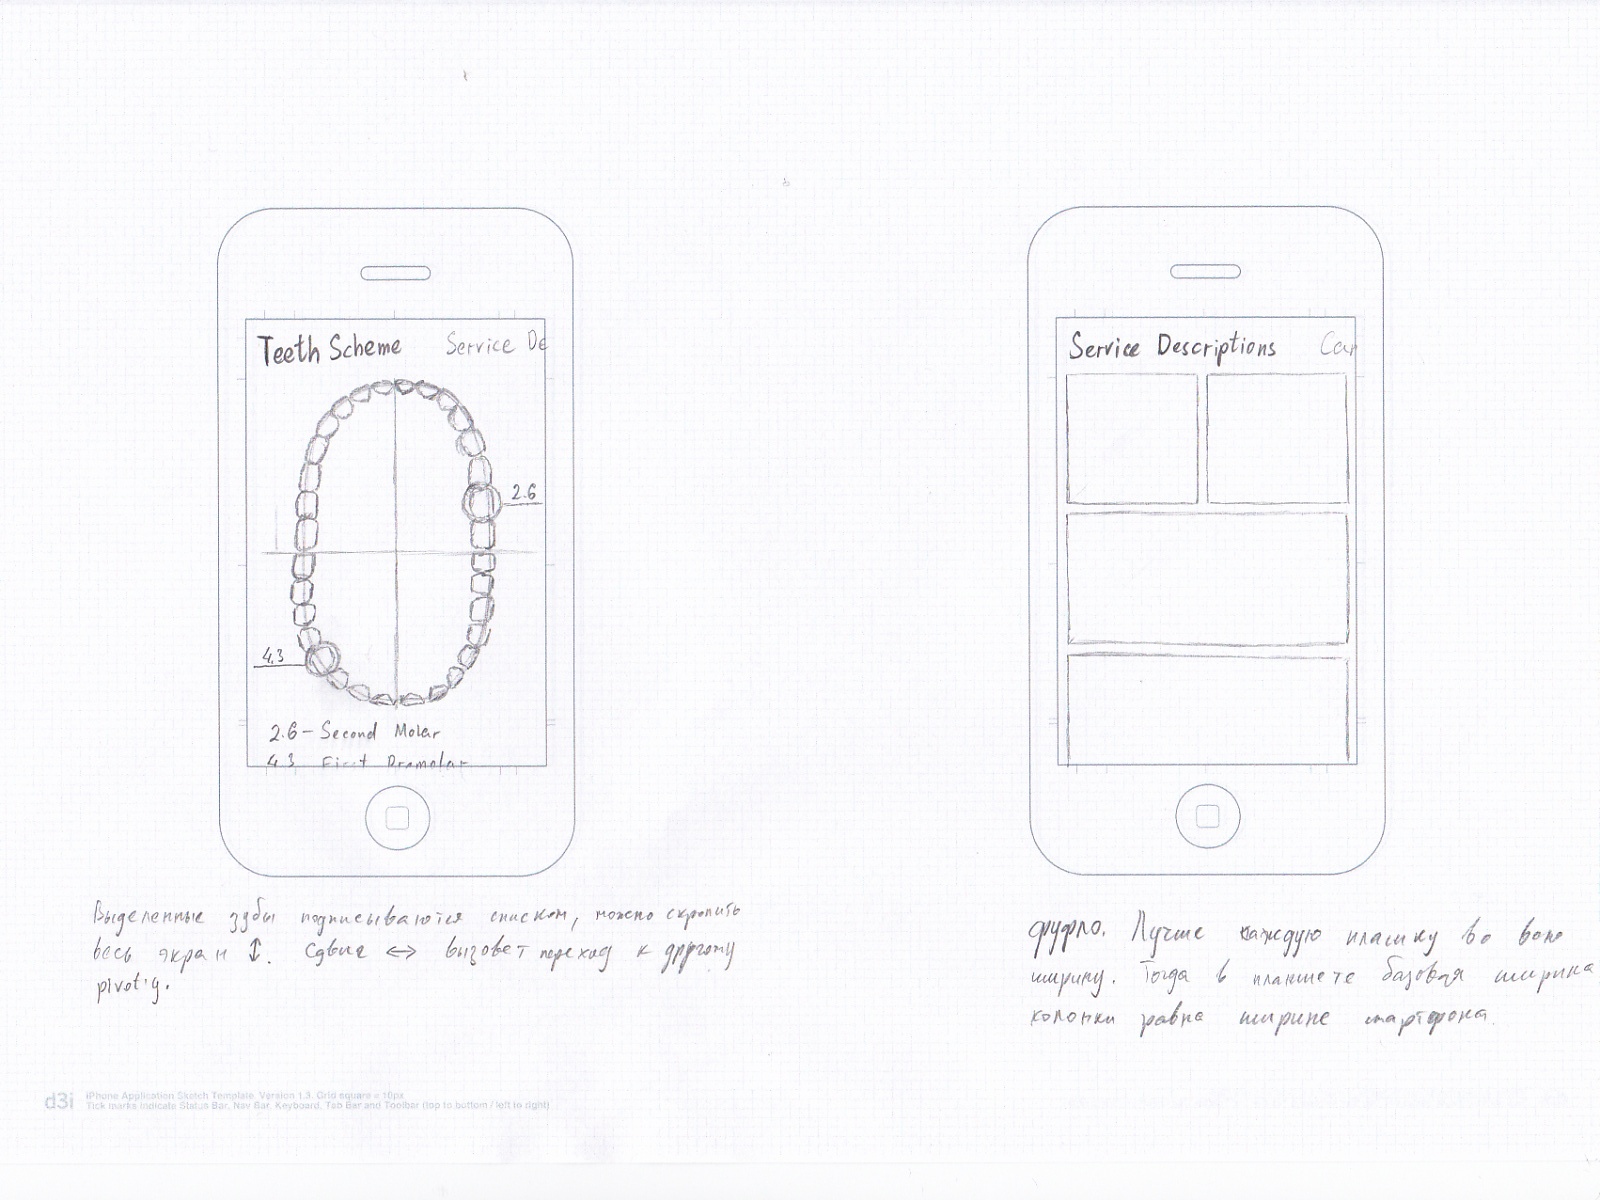 Teeth Scheme Service De
2.6
4.3
2.6 – Second Molar
4.3 First Premolar
Выделенные зубы подписываются списком, можно скролить
весь экран ↕. Сдвиг ↔ вызовет переход к другому
pivot'у.
Service Descriptions Car
фуфло. Лучше каждую плашку во всю
ширину. Тогда в планшете базовая ширина
колонки равна ширине смартфона.
d3i
iPhone Application Sketch Template. Version 1.3. Grid square = 10px
Tick marks indicate Status Bar, Nav Bar, Keyboard, Tab Bar and Toolbar (top to bottom / left to right)